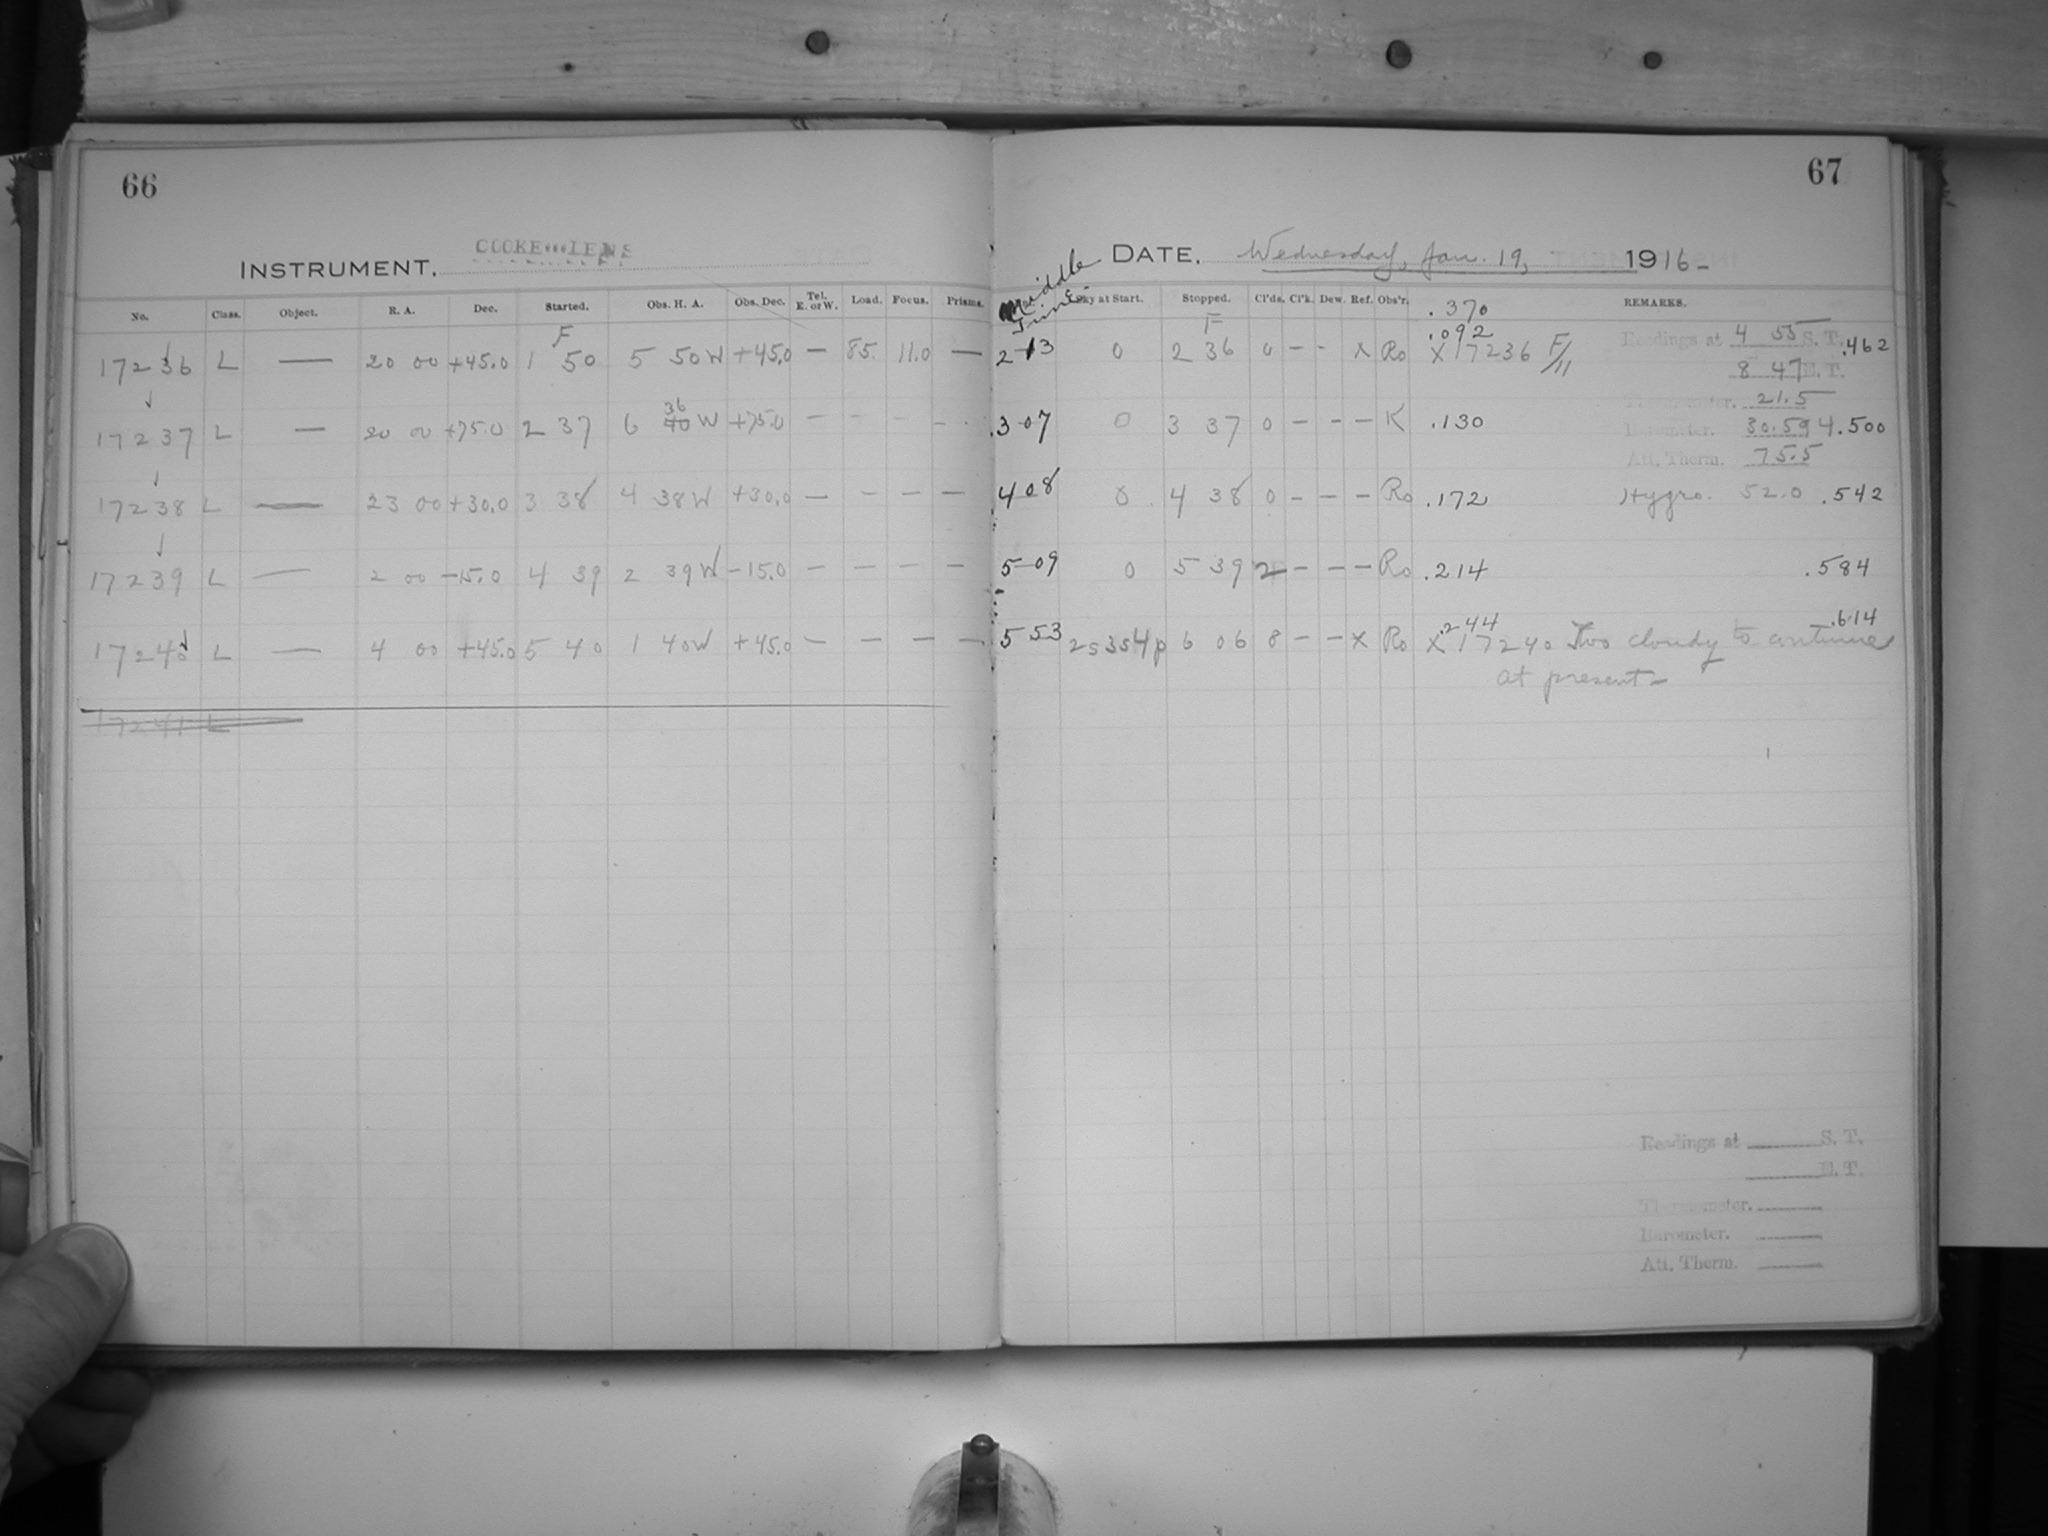 66
67
INSTRUMENT. COOKE LENS
DATE. Wednesday, Jan. 19, 1916-
No. Class. Object. R. A. Dec. Started. Obs. H. A. Obs. Dec. Tel. E. or W. Load. Focus. Prisms. Middle Time Sky at Start. Stopped. Cl'ds. Cl'k. Dew. Ref. Obs'r. .370 REMARKS.
F F .092 Readings at 4 55 S. T. .462
17236 L — 20 00 +45.0 1 50 5 50 W +45.0 — 85. 11.0 — 2 13 0 2 36 0 – – x Ro X 17236 F/11
8 47 E. T.
Thermometer. 21.5
17237 L — 20 00 +75.0 2 37 6 36 W +75.0 – – – – 3 07 0 3 37 0 – – – K .130 Barometer. 30.59 4.500
Att. Therm. 75.5
17238 L — 23 00 +30.0 3 38 4 38 W +30.0 – – – – 4 08 0 4 38 0 – – – Ro .172 Hygro. 52.0 .542
17239 L — 2 00 –15.0 4 39 2 39 W –15.0 – – – – 5 09 0 5 39 2 – – – Ro .214 .584
.244 .614
17240 L — 4 00 +45.0 5 40 1 40 W +45.0 – – – – 5 53 2s3s4p 6 06 8 – – x Ro X 17240 Too cloudy to continue
at present–
17241 L
Readings at S. T.
E. T.
Thermometer.
Barometer.
Att. Therm.